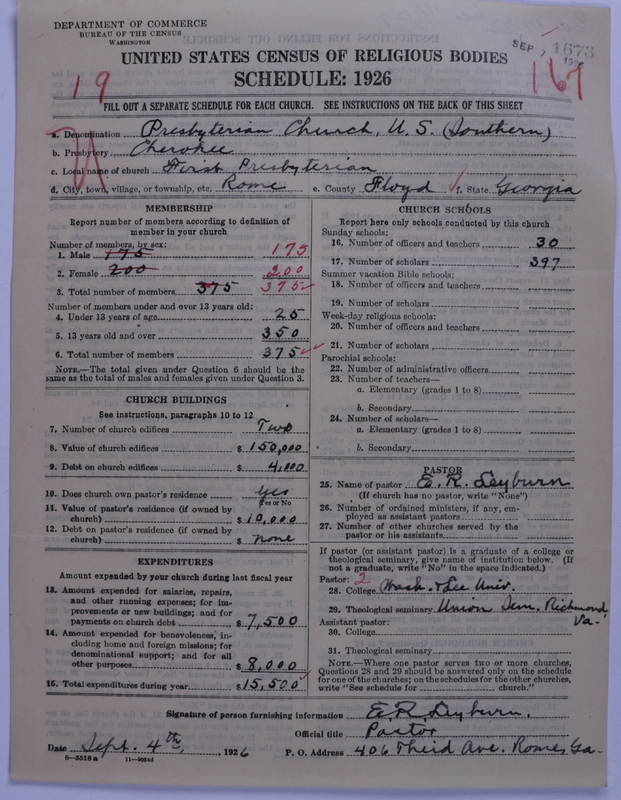 DEPARTMENT OF COMMERCE
BUREAU OF THE CENSUS
WASHINGTON
SEP 7 1926
1673
UNITED STATES CENSUS OF RELIGIOUS BODIES
SCHEDULE: 1926
19
167
FILL OUT A SEPARATE SCHEDULE FOR EACH CHURCH. SEE INSTRUCTIONS ON THE BACK OF THIS SHEET
a. Denomination Presbyterian Church, U. S. (Southern)
b. Presbytery Cherokee
c. Local name of church First Presbyterian
d. City, town, village, or township, etc. Rome e. County Floyd f. State Georgia
MEMBERSHIP
Report number of members according to definition of
member in your church
Number of members, by sex:
1. Male 175 175
2. Female 200 200
3. Total number of members 375 375
Number of members under and over 13 years old:
4. Under 13 years of age 25
5. 13 years old and over 350
6. Total number of members 375
NOTE.—The total given under Question 6 should be the
same as the total of males and females given under Question 3.
CHURCH BUILDINGS
See instructions, paragraphs 10 to 12
7. Number of church edifices Two
8. Value of church edifices $ 150,000
9. Debt on church edifices $ 4,000
10. Does church own pastor's residence Yes
Yes or No
11. Value of pastor's residence (if owned by
church) $ 10,000
12. Debt on pastor's residence (if owned by
church) $ none
EXPENDITURES
Amount expended by your church during last fiscal year
13. Amount expended for salaries, repairs,
and other running expenses; for im-
provements or new buildings; and for
payments on church debt $ 7,500
14. Amount expended for benevolences, in-
cluding home and foreign missions; for
denominational support; and for all
other purposes $ 8,000
15. Total expenditures during year $ 15,500
CHURCH SCHOOLS
Report here only schools conducted by this church
Sunday schools:
16. Number of officers and teachers 30
17. Number of scholars 397
Summer vacation Bible schools:
18. Number of officers and teachers
19. Number of scholars
Week-day religious schools:
20. Number of officers and teachers
21. Number of scholars
Parochial schools:
22. Number of administrative officers
23. Number of teachers—
a. Elementary (grades 1 to 8)
b. Secondary
24. Number of scholars—
a. Elementary (grades 1 to 8)
b. Secondary
PASTOR
25. Name of pastor E. R. Leyburn
(If church has no pastor, write "None")
26. Number of ordained ministers, if any, em-
ployed as assistant pastors
27. Number of other churches served by the
pastor or his assistants
If pastor (or assistant pastor) is a graduate of a college or
theological seminary, give name of institution below. (If
not a graduate, write "No" in the space indicated.)
Pastor: 2
28. College Wash. & Lee Univ.
29. Theological seminary Union Sem. Richmond,
Va-
Assistant pastor:
30. College
31. Theological seminary
NOTE.—Where one pastor serves two or more churches,
Questions 28 and 29 should be answered only on the schedule
for one of the churches; on the schedules for the other churches,
write "See schedule for church."
Signature of person furnishing information E. R. Leyburn.
Official title Pastor
Date Sept. 4th, 1926 P. O. Address 406 Third Ave. Rome, Ga-
8—5518 a 11—9054d